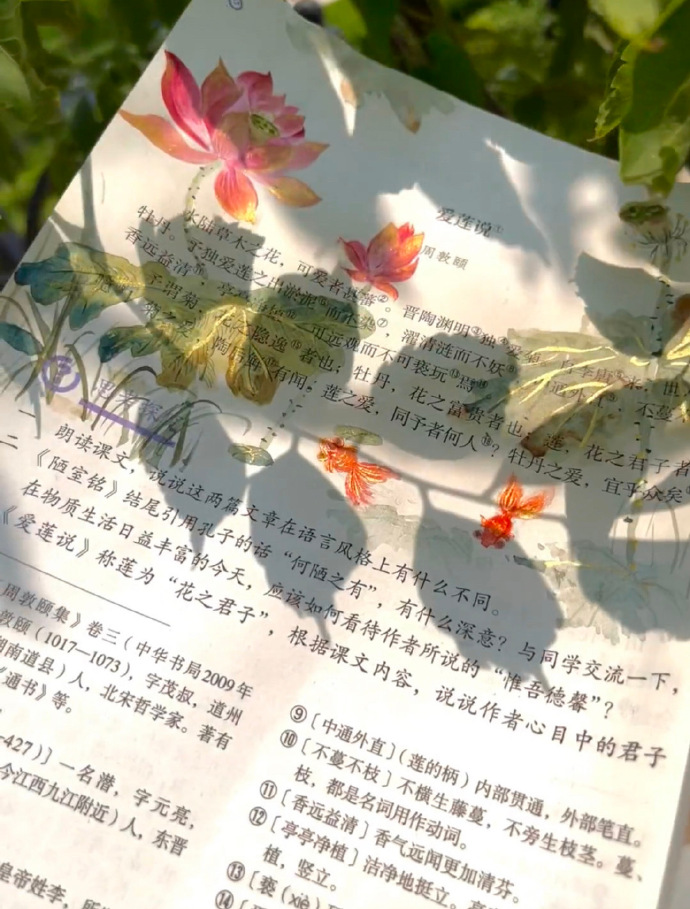 爱莲说①
周敦颐
水陆草木之花，可爱者甚蕃②。晋陶渊明③独④爱菊。
牡丹。予独爱莲之出淤泥而不染⑦，濯清涟而不妖⑧
香远益清⑪，可远观而不可亵玩⑬焉⑭
予谓菊，花之隐逸⑮者也；牡丹，花之富贵者也；莲，花之君子者
菊之爱，陶后鲜⑰有闻；莲之爱，同予者何人⑱？牡丹之爱，宜乎众矣
思考探
一 朗读课文，说说这两篇文章在语言风格上有什么不同。
二 《陋室铭》结尾引用孔子的话“何陋之有”，有什么深意？与同学交流一下，
在物质生活日益丰富的今天，应该如何看待作者所说的“惟吾德馨”？
《爱莲说》称莲为“花之君子”，根据课文内容，说说作者心目中的君子
周敦颐集》卷三（中华书局2009年
敦颐（1017—1073），字茂叔，道州
湖南道县）人，北宋哲学家。著有
《通书》等。
-427）］一名潜，字元亮，
今江西九江附近）人，东晋
皇帝姓李，所
⑨〔中通外直〕（莲的柄）内部贯通，外部笔直。
⑩〔不蔓不枝〕不横生藤蔓，不旁生枝茎。蔓、
枝，都是名词用作动词。
⑪〔香远益清〕香气远闻更加清芬。
⑫〔亭亭净植〕洁净地挺立。
植，竖立。
⑬〔亵（xiè）
⑭